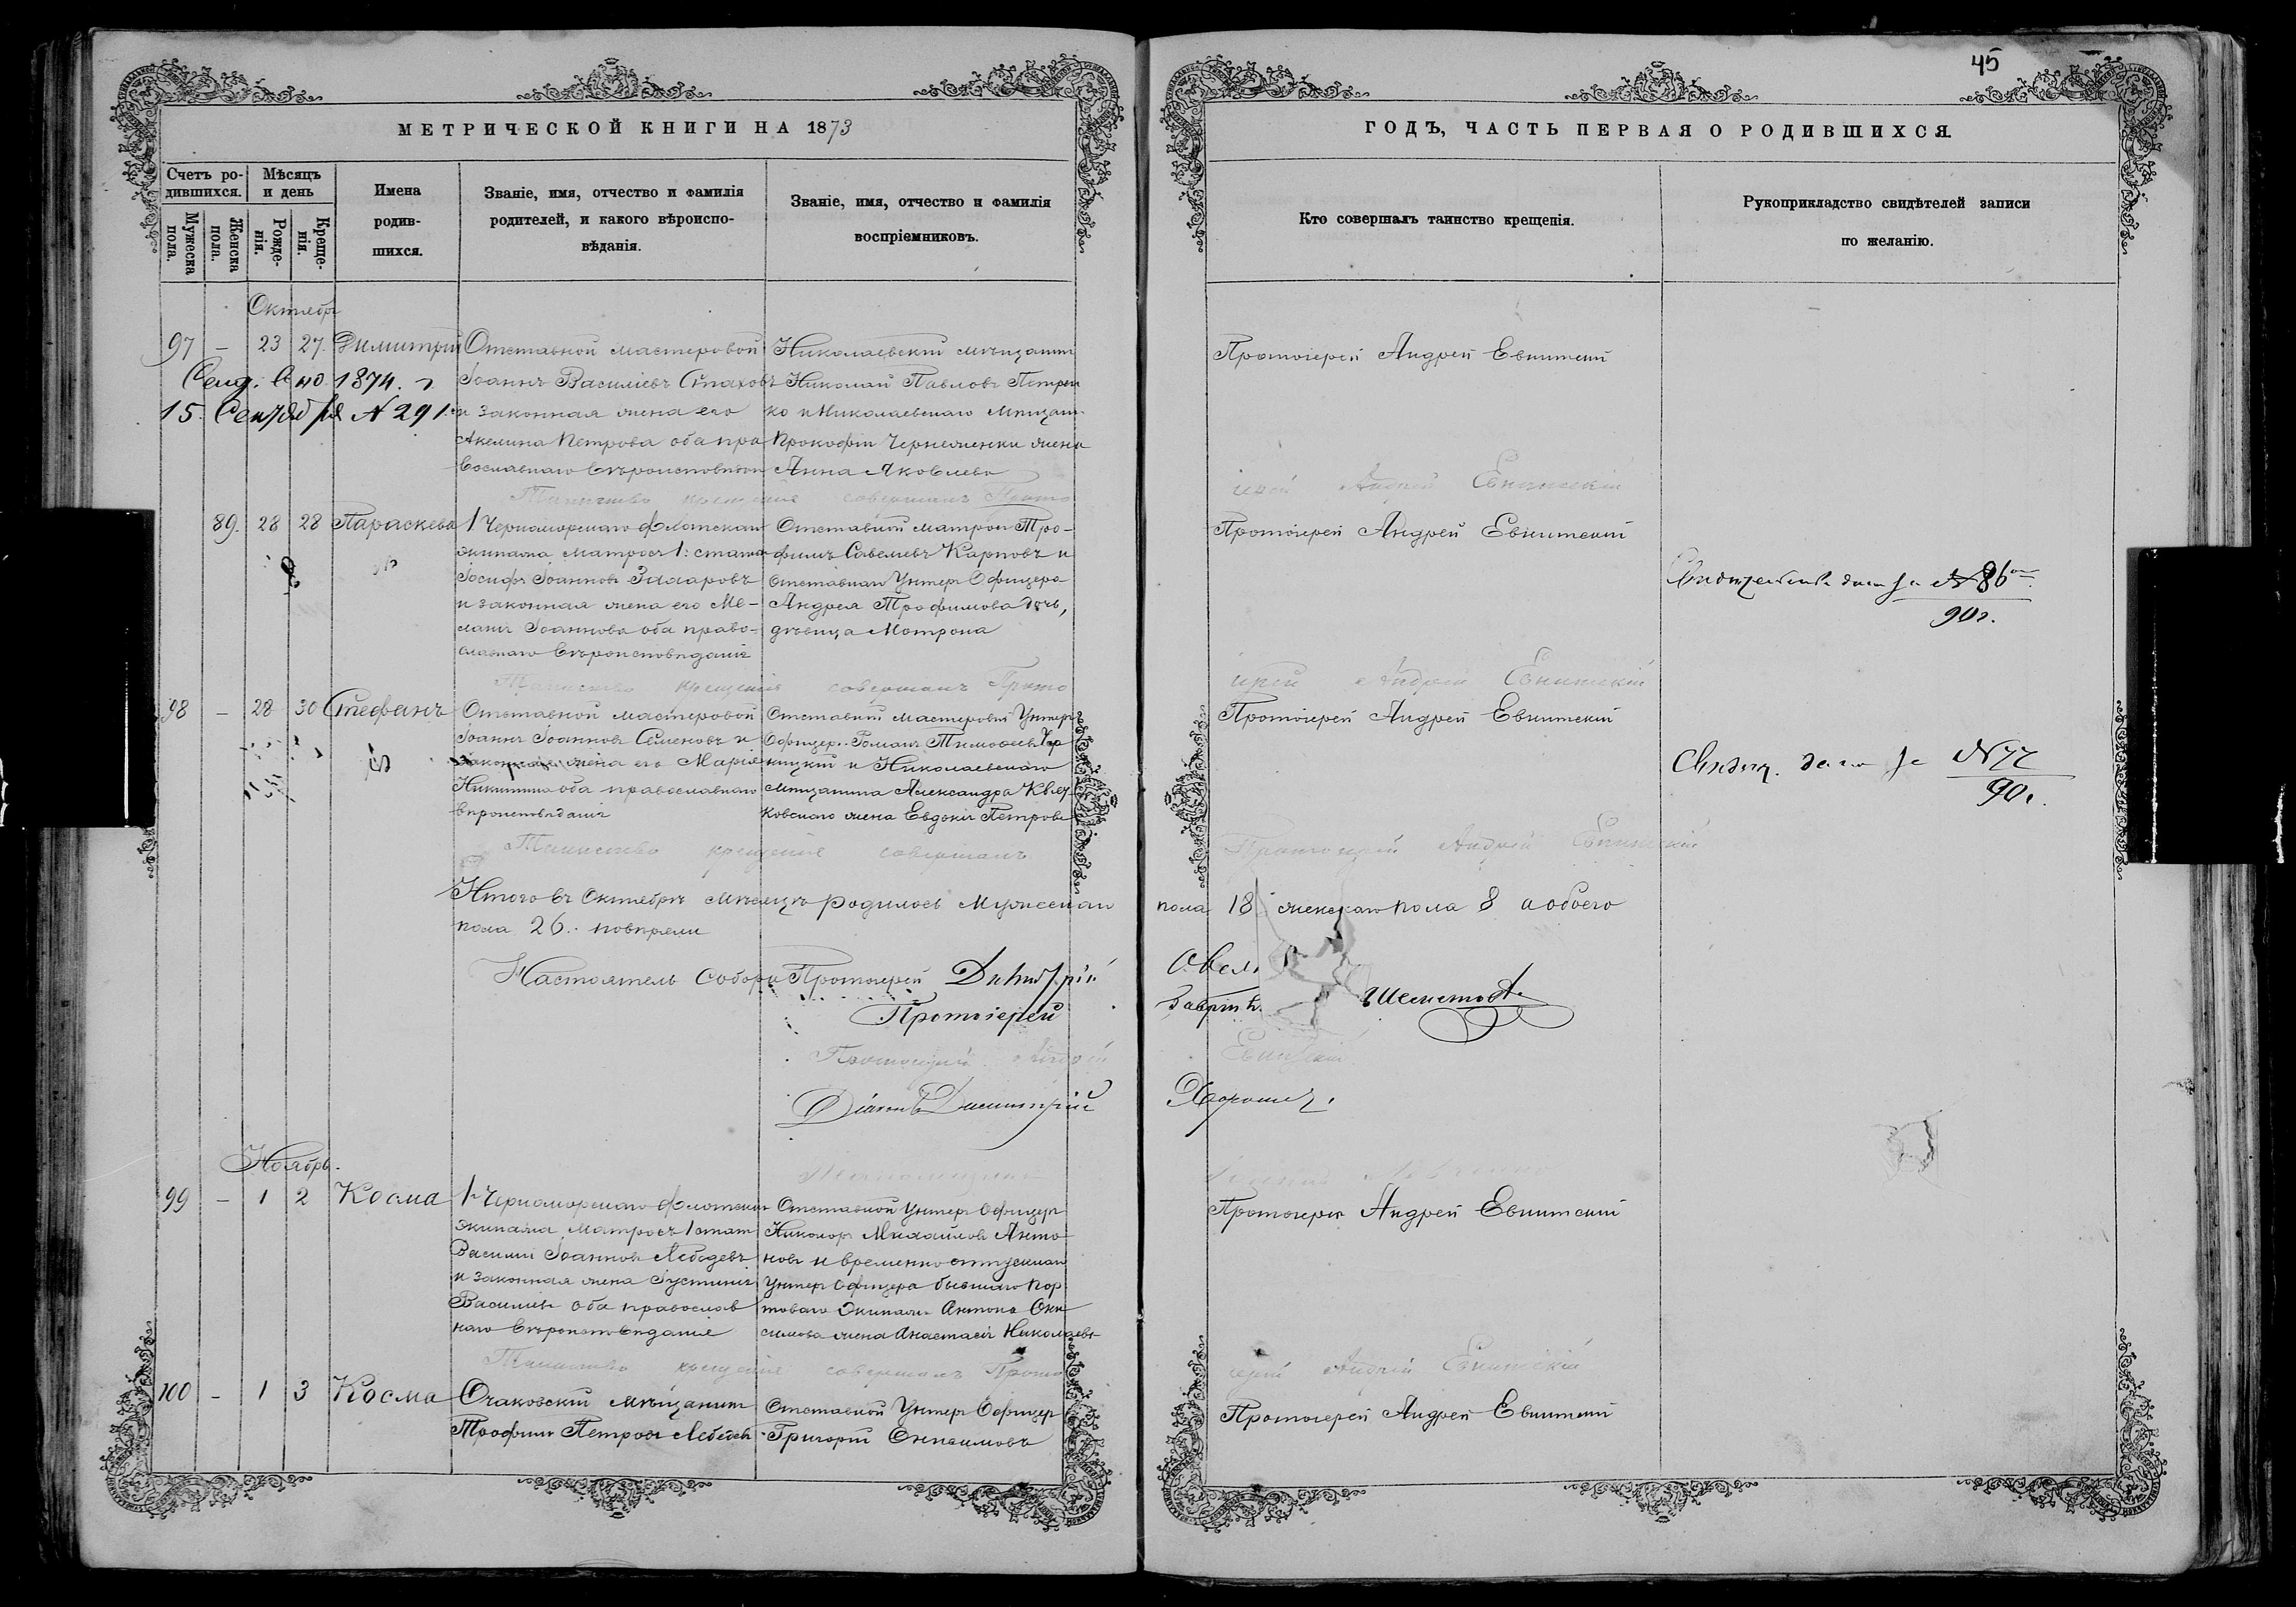 45
МЕТРИЧЕСКОЙ КНИГИ НА 1873
ГОДЪ, ЧАСТЬ ПЕРВАЯ О РОДИВШИХСЯ.
Счетъ ро-
дившихся.
Мужеска
пола.
Женска
пола.
Мѣсяцъ
и день
Рожде-
нія.
Креще-
нія.
Имена
родив-
шихся.
Званіе, имя, отчество и фамилія
родителей, и какого вѣроиспо-
вѣданія.
Званіе, имя, отчество и фамилія
воспріемниковъ.
Кто совершалъ таинство крещенія.
Рукоприкладство свидѣтелей записи
по желанію.
Октябрь
97 – 23 27 Димитрій
1874. г
15. Сентября № 291
Отставной мастеровой
Іоаннъ Василіевъ Стаховъ
и законная жена его
Акелина Петрова оба пра
вославнаго вѣроисповѣдан
Николаевскій мѣщанин
Николай Павловъ Петрен
ко и Николаевскаго Мѣщан.
Прокофія жена
Анна Яковлева
Протоіерей Андрей Евнитскій
Таинство крещенія совершалъ Прото
ирей Андрей Евнитскій
89. 28 28 Параскева
1 Черноморскаго флотскаго
экипажа матросъ 1: статьи
Іосифъ Іоанновъ
и законная жена его Ме-
ланія Іоаннова оба право-
славнаго вѣроисповѣданія
Отставной матросъ Тро-
фимъ Савельевъ Карповъ и
отставнаго Унтеръ Офицера
Андрея Трофимова дочь,
дѣвица Мотрона
Протоіерей Андрей Евнитскій
за № 86
90г.
Таинство крещенія совершалъ Прото
ирей Андрей Евнитскій
98 – 28 30 Стефанъ
Отставной мастеровой
Іоаннъ Іоанновъ Семеновъ и
законная жена его Марія
Никитина оба православнаго
вѣроисповѣданія
Отставной мастеровой Унтеръ
Офицеръ Романъ Тимофеевъ
и Николаевскаго
Мѣщанина Александра
жена Евдокія Петрова
Протоіерей Андрей Евнитскій
Свидѣт. дано за № 77
90г.
Таинство крещенія совершалъ
Протоирей Андрей Евнитскій
Итого въ Октябрѣ мѣсяцѣ родилось Мужескаго
пола 18 женскаго пола 8 а обоего
пола 26.
Настоятель Собора Протоіерей Димитрій
Протоіерей Гавріилъ
Протоіерей Андрей Евнитскій
Діаконъ Димитрій
Ноябрь.
99 – 1 2 Косма
1 Черноморскаго флотскаго
экипажа, матросъ 1 стат
Василій Іоанновъ Лебедевъ
и законная жена Іустинія
Василіева оба православ
наго вѣроисповѣданія
Отставной Унтеръ Офицеръ
Никоноръ Михайловъ Анто
новъ и временно отпускнаго
Унтеръ Офицера бывшаго пор
товаго Экипажа Антона Они
симова жена Анастасія Николаева
Протоіерей Андрей Евнитскій
Таинство крещенія совершалъ Прото
ирей Андрей Евнитскій
100 – 1 3 Косма
Очаковскій мѣщанин
Трофимъ Петровъ Лебедев
Отставной Унтеръ Офицер
Григорій Онисимовъ
Протоіерей Андрей Евнитскій